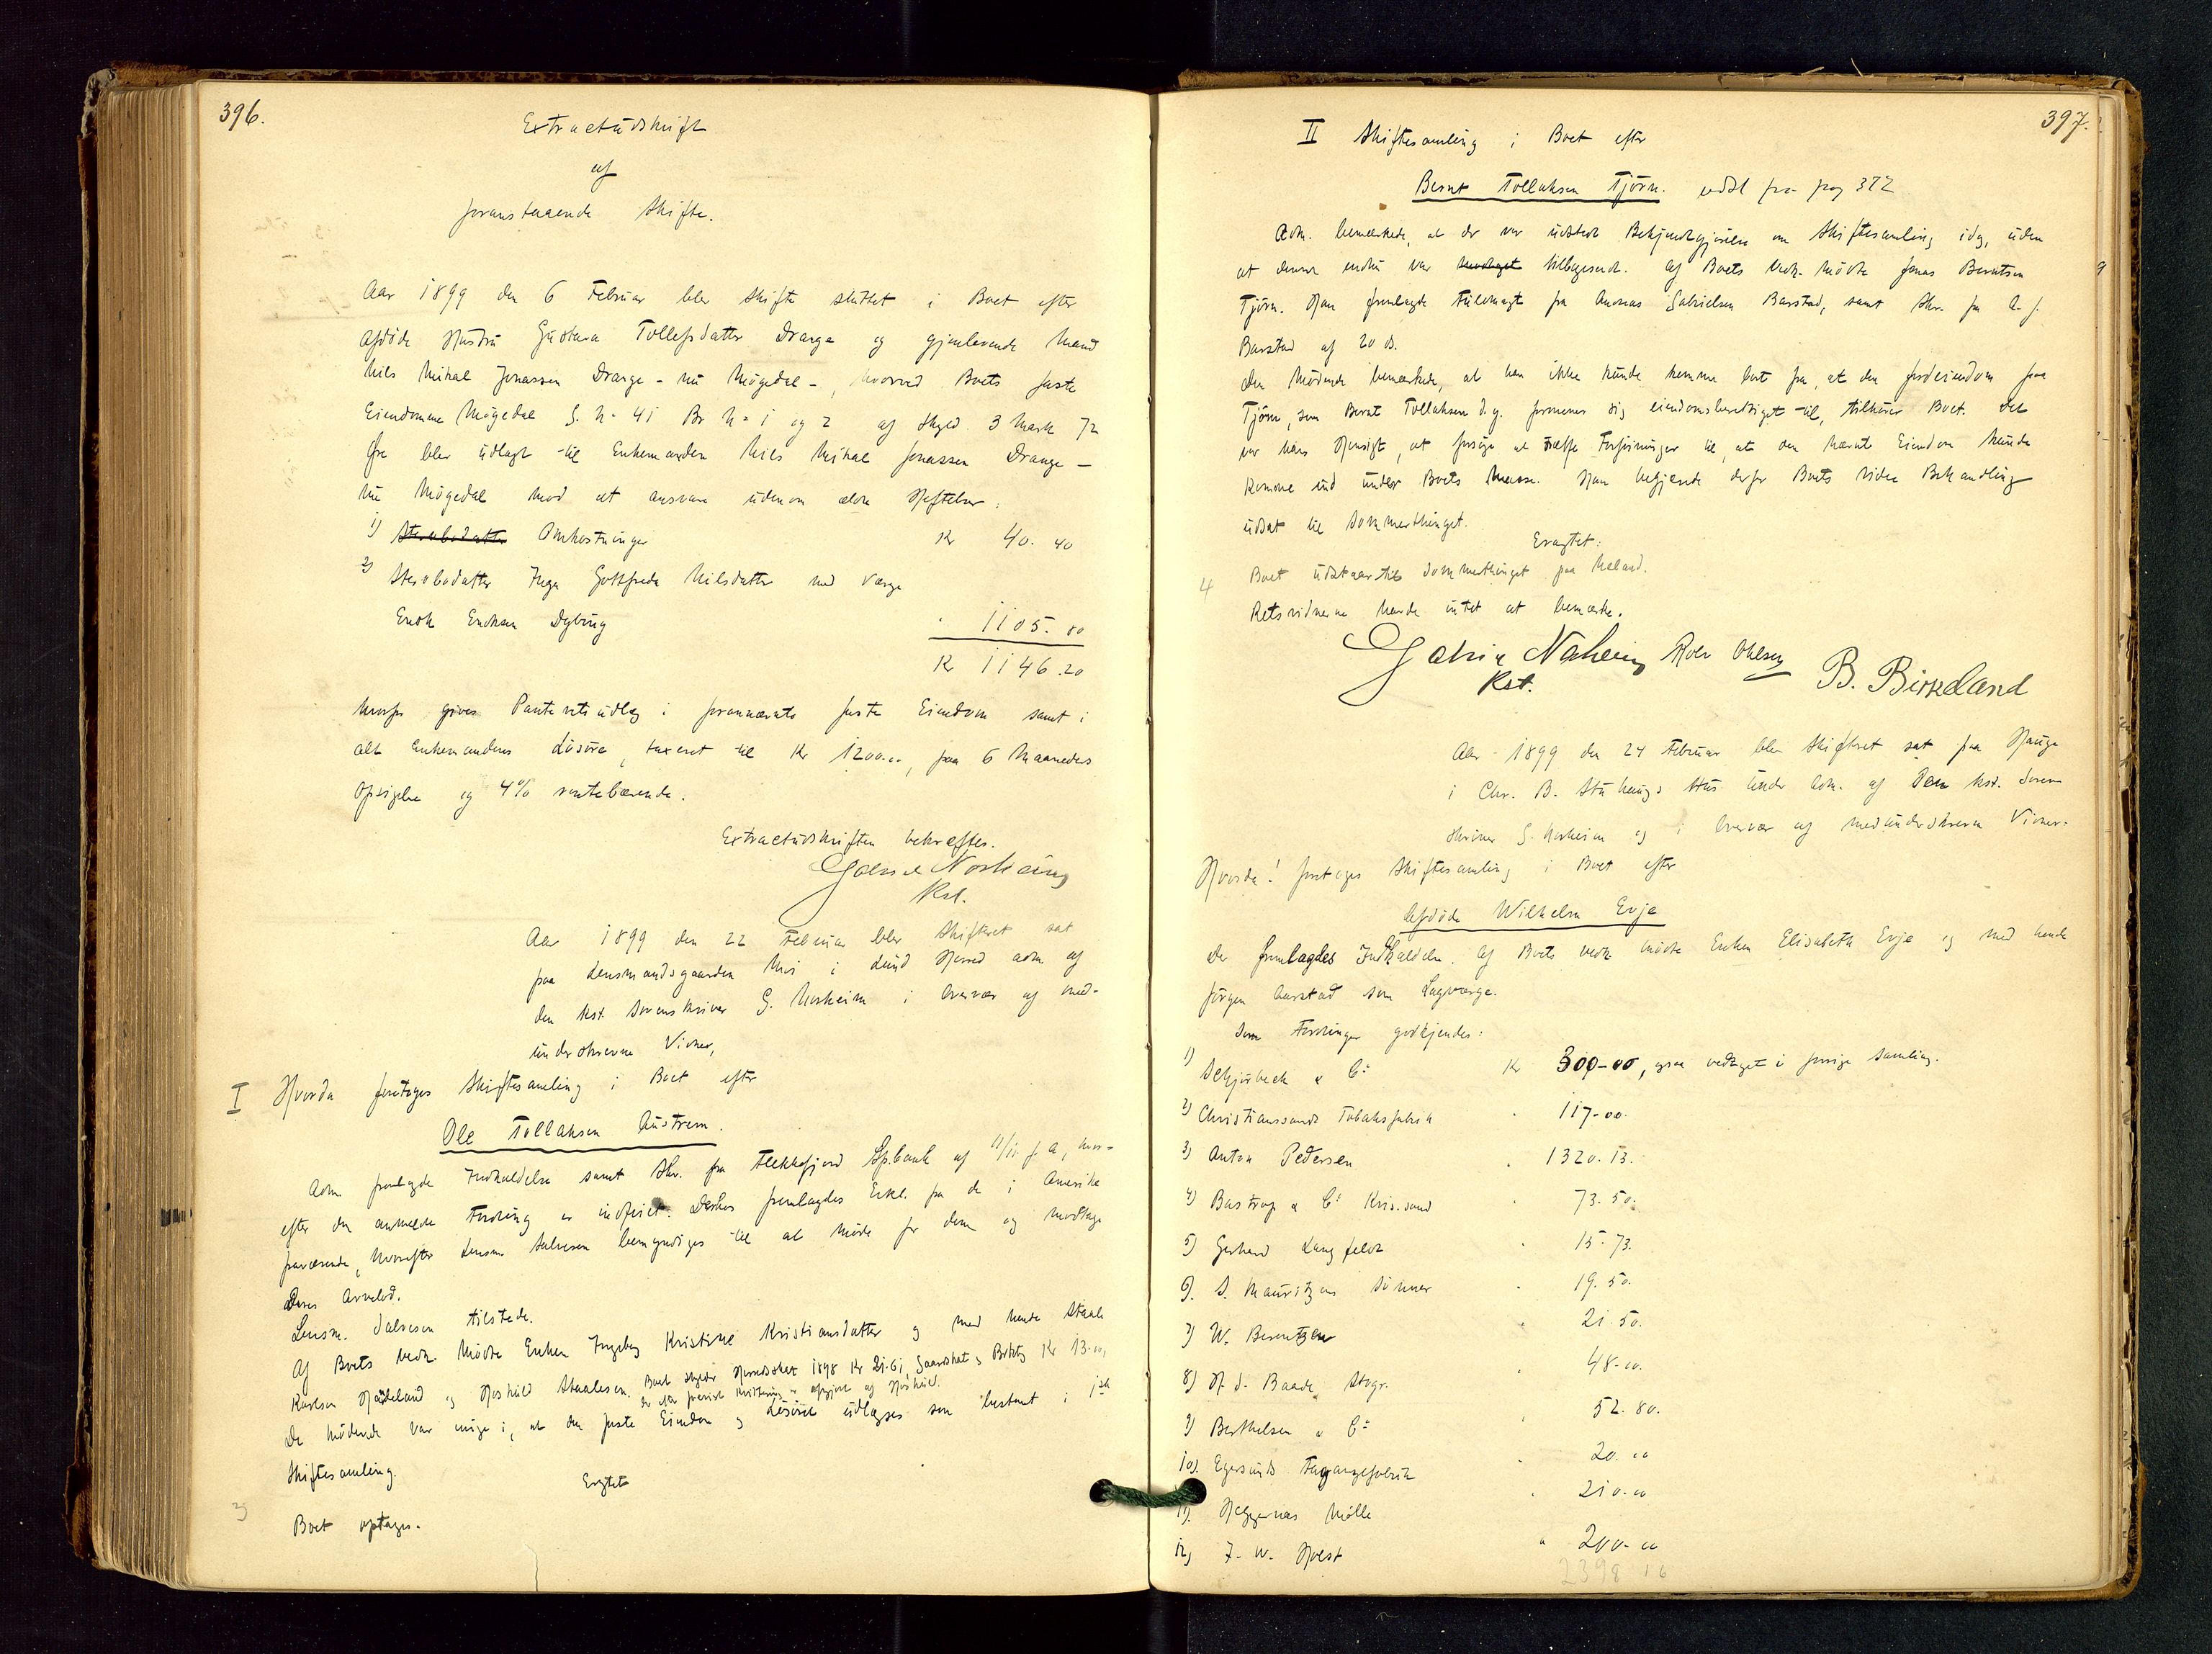 396.
Extractudskrift
af
foranstaaende Skifte.
Aar 1899 den 6 Februar blev Skifte sluttet i Boet efter
afdöde Hustru Gustava Tollefsdatter Drange og gjenlevende Mand
Nils Mikal Jonassen Drange - nu Mögedal -, hvorved Boets faste
Eiendomme Mögedal G. N= 41 Br N= 1 og 2 af Skyld 3 Mark 72
Öre blev udlagt til Enkemanden Nils Mikal Jonassen Drange -
nu Mögedal mod at ansvare udenom ældre Heftelser:
1) Omkostninger Kr 40. 40
2) Stervbodatter Inga Gottfreda Nilsdatter med Værge
Enok Enoksen Dybing " 1105. 80
Kr 1146.20
hvorfor gives Panteretsudlæg i forannævnte faste Eiendom samt i
alt Enkemandens Lösöre, taxeret til Kr 1200.00, paa 6 Maaneders
Opsigelse og 4% rentebærende.
Extractudskriften bekræftes.
Norheim
Kst.
Aar 1899 den 22 Februar blev Skifteret sat
paa Lensmandsgaarden Moi i Lund Herred adm. af
den kst. Sorenskriver G. Norheim i Overvær af med-
underskrevne Vidner,
I Hvorda foretoges Skiftesamling i Boet efter
Ole Tollaksen Austrem.
Adm. fremlagde Indkaldelse samt Skr. fra Flekkefjord Sp.bank af f. A, hvor-
efter den anmeldte Fordring er indfriet. Derhos fremlagdes Erkl. fra de i Amerika
fraværende, hvorefter Lensm. Salvesen bemyndiges til at möde for dem og modtage
deres Arvelod.
Lensm. Salvesen tilstede.
Af Boets Vedk. mödte Enken Ingeborg Kristine Kristiansdatter og med hende Staale
Karlsen Hadeland og Hoskuld Staalesen. Boet skylder Herredsskat 1898 Kr 21.61, Gaardskat og Kr 13.00,
der efter Kvittering er afgjort af Hoskuld.
De Mödende var enige i, at den faste Eiendom og Lösöret udlægges som bestemt i 1ste
Skiftesamling.
Eragtet
3) Boet optages.
397.
II Skiftesamling i Boet efter
Bernt Tollaksen Tjörn. udst fra pag 372
Adm. bemærkede, at der var udstedt Bekjendtgjörelse om Skiftesamling idag, uden
at denne endnu var tilbagesendt. Af Boets Vedk. mödte Jonas Berntsen
Tjörn. Han fremlagde Fuldmagt fra Andreas Gabrielsen Barstad, samt Skr. fra A. J.
Barstad af 20 ds.
Den Mödende bemærkede, at han ikke kunde komme bort fra, at den Jordeiendom paa
Tjörn, som Bernt Tollaksen d.y. formener sig eiendomsberettiget til, tilhörer Boet. Det
var hans Hensigt, at forsöge at træffe Forföininger til, at den nævnte Eiendom kunde
komme ind under Boets Masse. Han begjærede derfor Boets videre Behandling
udsat til Sommerthinget.
Eragtet:
4 Boet udstaar til Sommerthinget paa Meland.
Retsvidnerne havde intet at bemærke.
Norheim Rolv Ohlsen B. Birkeland
Kst.
Aar 1899 den 24 Februar blev Skifteret sat paa Hauge
i Chr. B. Stuhaugs Hus under Adm. af den kst. Soren-
skriver G. Norheim og i Overvær af medunderskrevne Vidner.
Hvorda! foretoges Skiftesamling i Boet efter
Afdöde Wilhelm Evje
Der fremlagdes Indkaldelse. Af Boets Vedk mödte Enken Elisabeth Evje og med hende
Jörgen Aarstad som Lagværge.
Som Fordringer godkjendes:
1) Schjörbeck & C° Kr 300-00, ogsaa vedtaget i forrige Samling.
2) Christianssands Tobaksfabrik " 117-00.
3) Anton Pedersen " 1320. 13.
4) Bastrup & C° Kris.sand " 73. 50.
5) Gerhard Langfeldt " 15-73.
6) S. Mauritzens Sönner " 19. 50.
7) W. Berentzen " 21. 50.
8) H. J. Baade, Stvgr. " 48-00.
9) Berthelsen & C° " 52. 80.
10) Egersunds Fayancefabrik " 20. 00
11) Mölle " 210.00
12) J. W. Holst " 200-00
2398 16